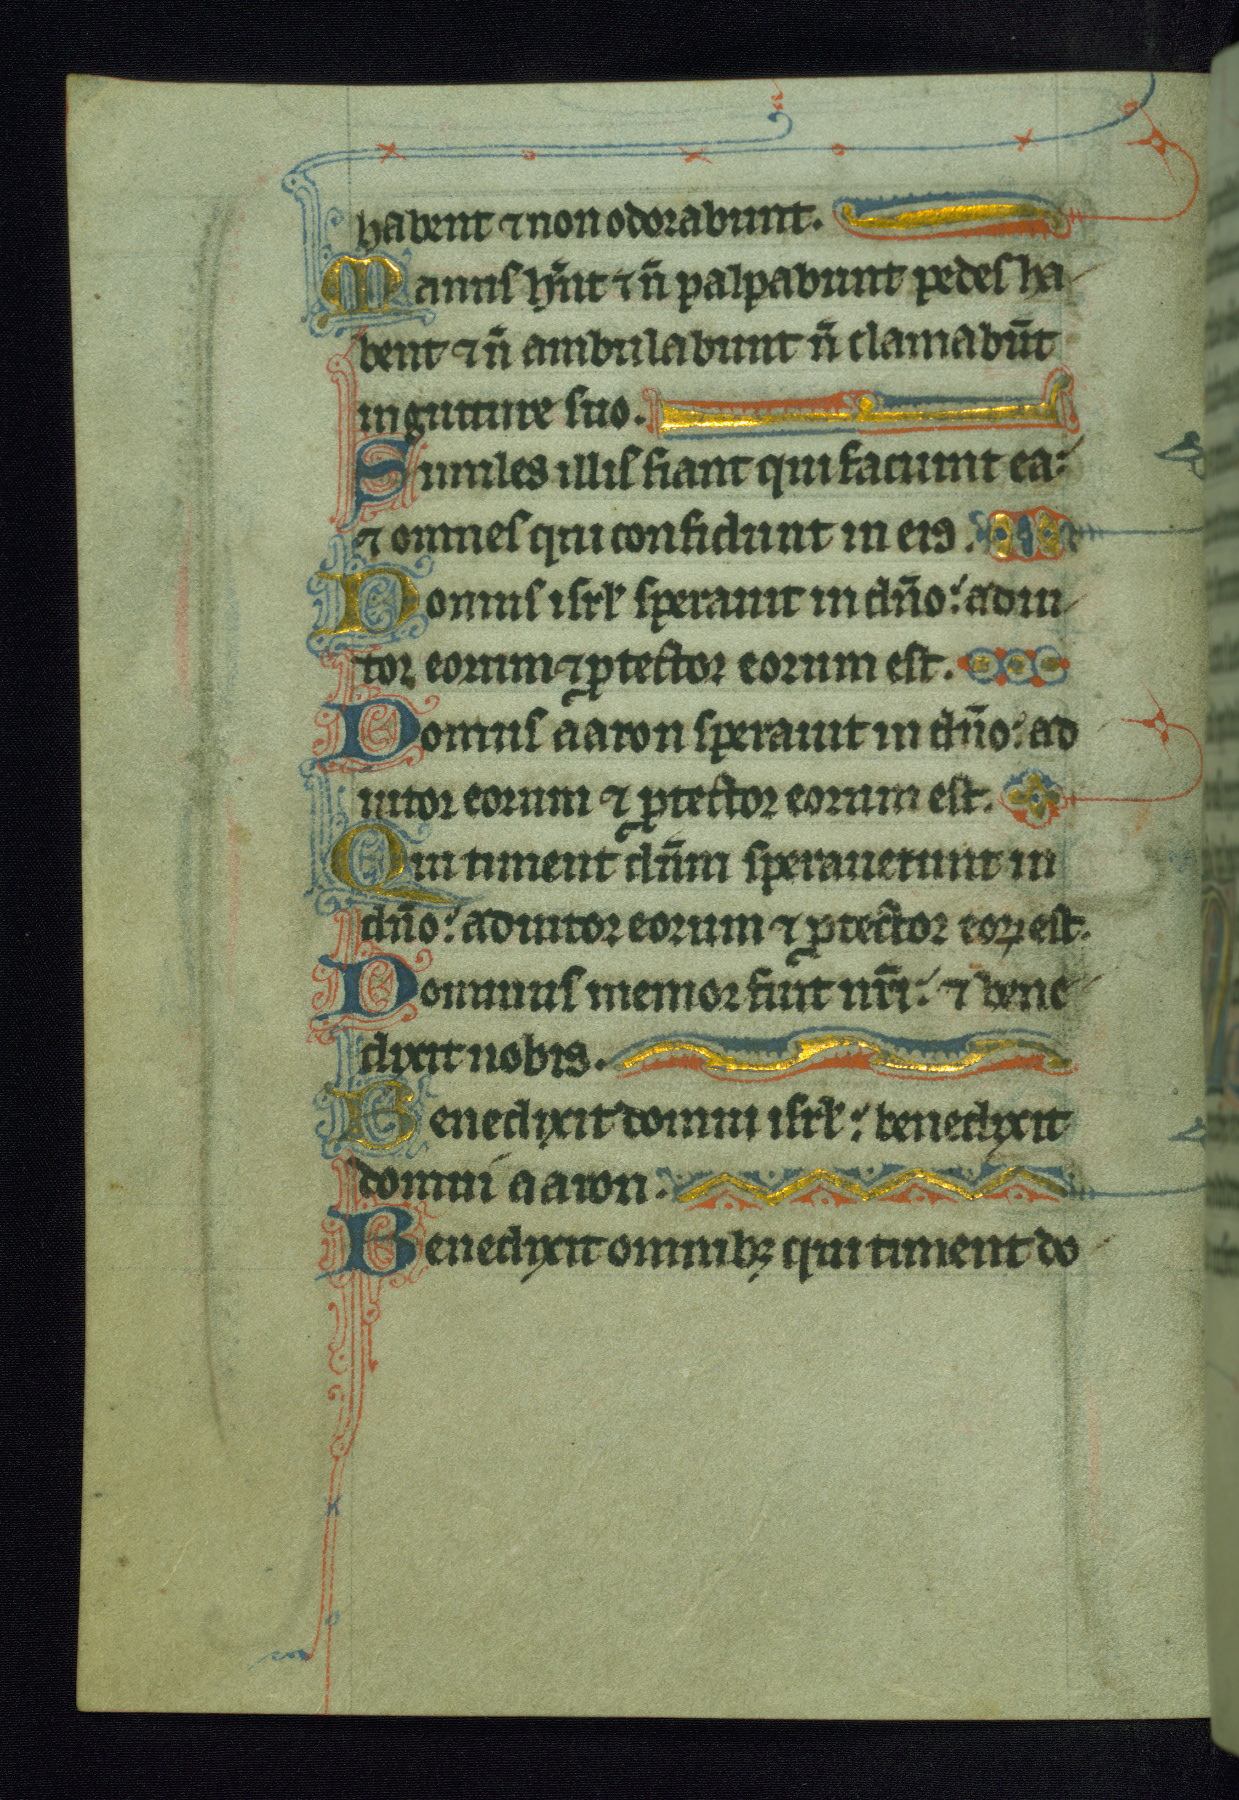 habent ⁊ non odorabunt.
Manus hn̄t ⁊ n̄ palpabunt pedes ha
bent ⁊ n̄ ambulabunt n̄ clamabūt
in gutture suo.
Similes illis fiant qui faciunt ea:
⁊ omnes qui confidunt in eis.
Domus isrl̕ sperauit in dn̄o: adiu
tor eorum ⁊ ꝓtector eorum est.
Domus aaron sperauit in dn̄o: ad
iutor eorum ⁊ ꝓtector eorum est.
Qui timent dn̄m sperauerunt in
dn̄o: adiutor eorum ⁊ ꝓtector eoꝝ est.
Dominus memor fuit nr̄i: ⁊ bene
dixit nobis.
Benedixit domui isrl̕: benedixit
domui aaron.
Benedixit omnibꝫ qui timent do